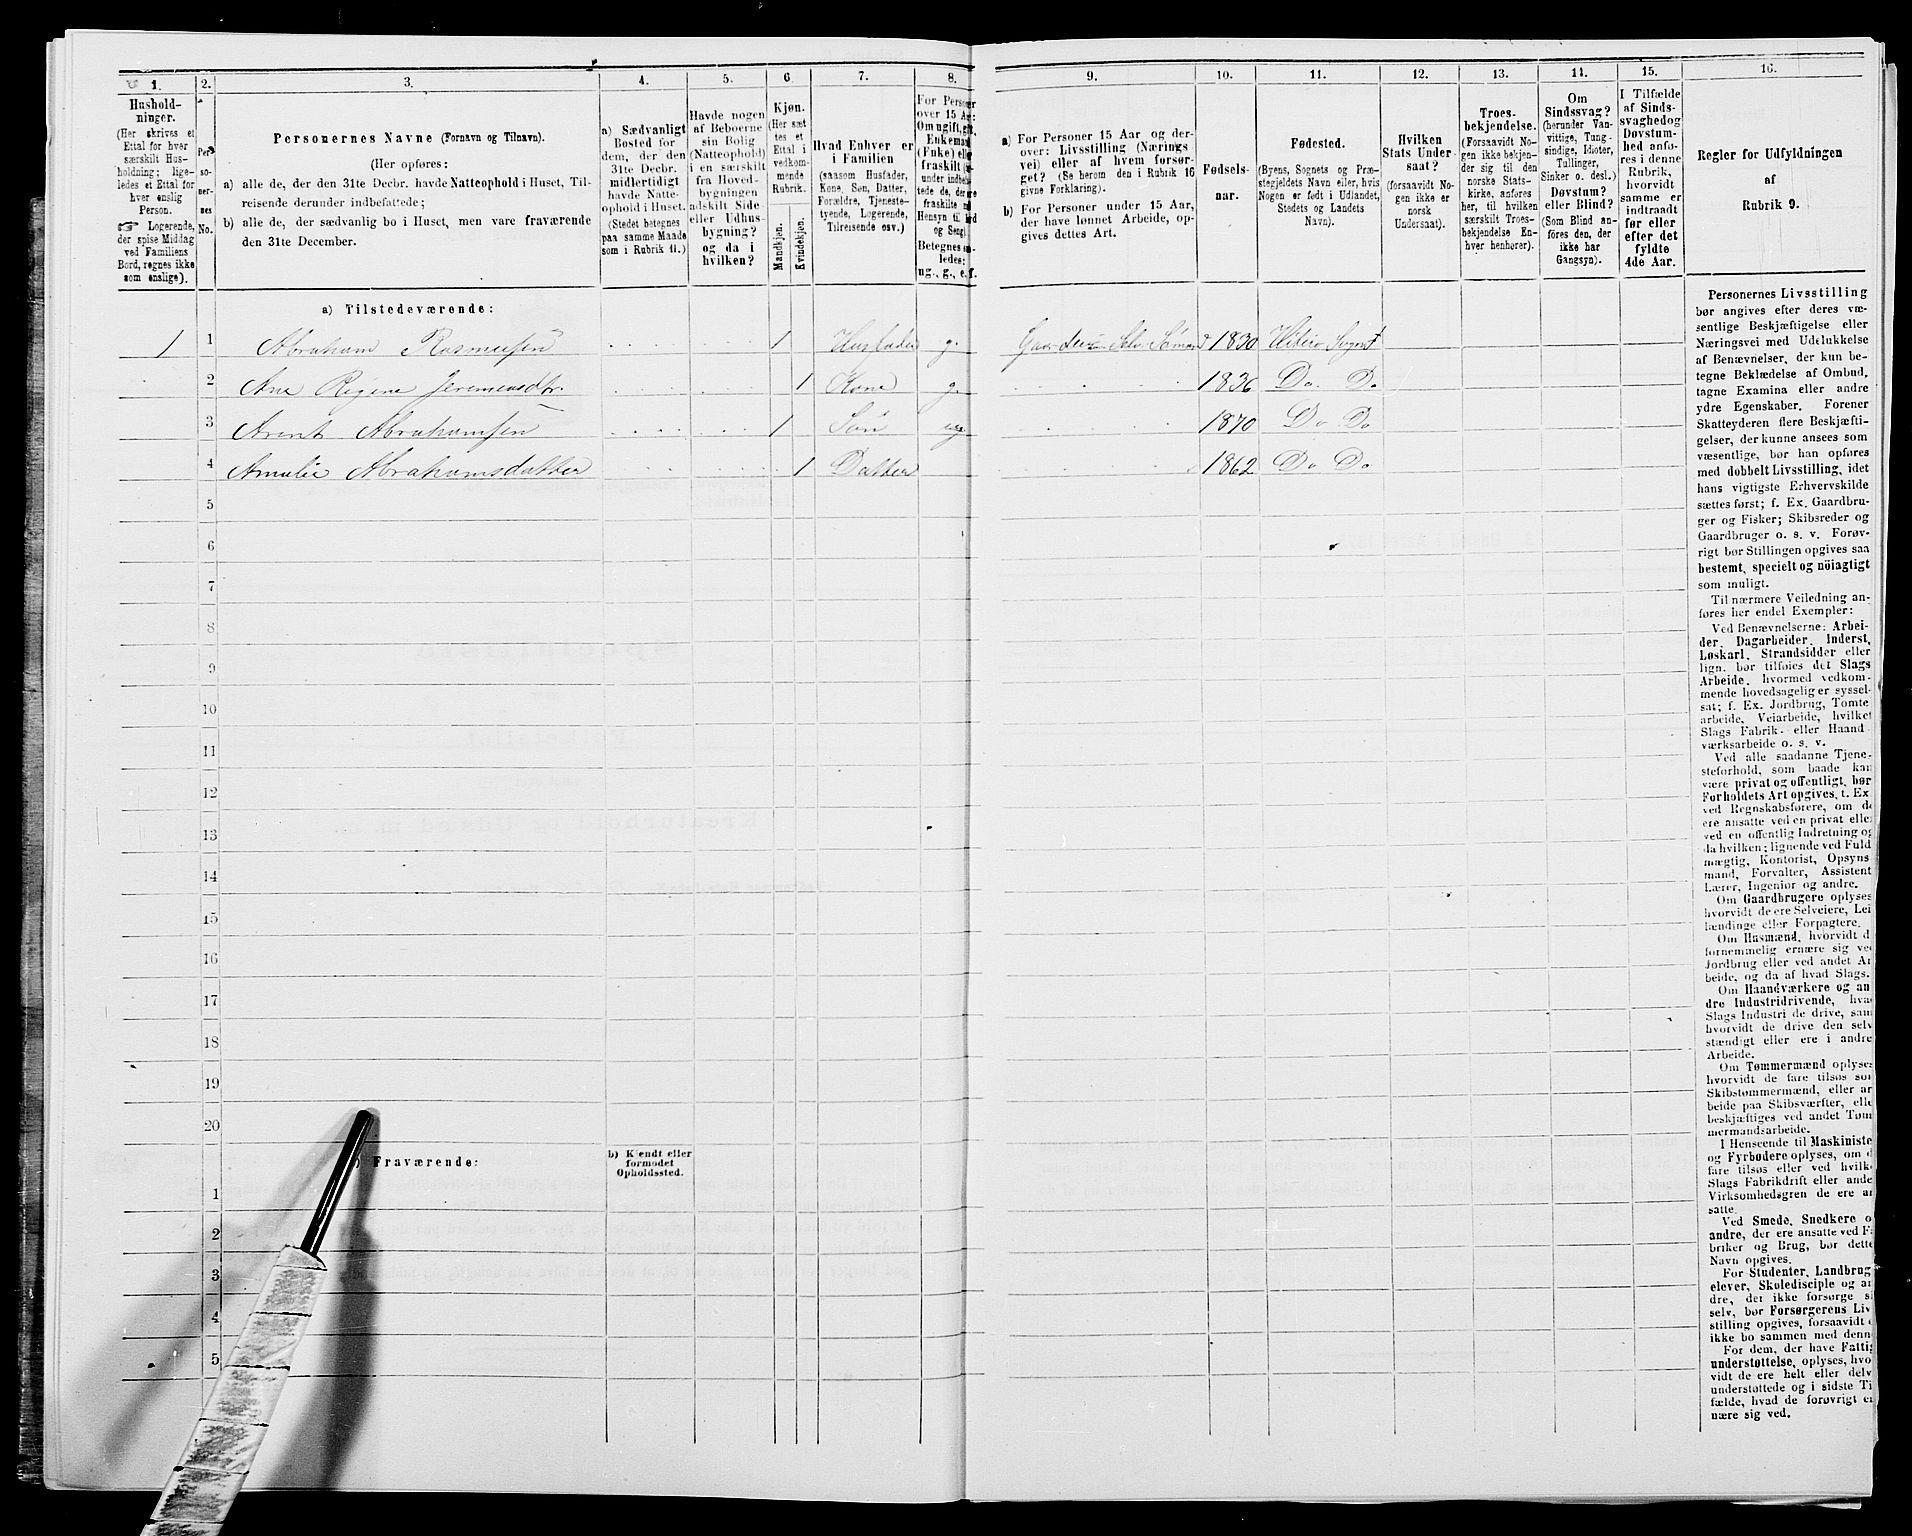 1. 2. 3. 4. 5. 6. 7. 8. 9. 10. 11. 12. 13. 14. 15. 16.
Hushold-
ninger.
(Her skrives et
Ettal for hver
særskilt Hus-
holdning; lige-
ledes et Ettal for
hver enslig
Person.
☞ Logerende,
der spise Middag
ved Familiens
Bord, regnes ikke
som enslige).
Per
so-
ner-
nes
No.
Personernes Navne (Fornavn og Tilnavn).
(Her opføres:
a) alle de, der den 31te Decbr. havde Natteophold i Huset, Til-
reisende derunder indbefattede;
b) alle de, der sædvanlig bo i Huset, men vare fraværende
den 31te December.
a) Sædvanligt
Bosted for
dem, der den
31te Decbr.
midlertidigt
havde Natte-
ophold i Huset.
(Stedet betegnes
paa samme Maade
som i Rubrik 11.)
Havde nogen
af Beboerne
sin Bolig
(Natteophold)
i en særskilt
fra Hoved-
bygningen
adskilt Side-
eller Udhus-
bygning?
og da i
hvilken?
Kjøn.
(Her sæt-
tes et
Ettal i
vedkom-
mende
Rubrik.
Mandkjøn.
Kvindekjøn.
Hvad Enhver er
i Familien
(saasom Husfader,
Kone, Søn, Datter,
Forældre, Tjeneste-
tyende, Logerende,
Tilreisende osv.)
For Person
over 15 Aar:
Om ugift, gift,
Enkemand
(Enke) eller
fraskilt
Hensyn til
og Seng).
a) For Personer 15 Aar og der-
over: Livsstilling (Nærings
vei) eller af hvem forsør-
get? (Se herom den i Rubrik 16
givne Forklaring).
b) For Personer under 15 Aar,
der have lønnet Arbeide, op-
gives dettes Art.
Fødsels-
aar.
Fødested.
(Byens, Sognets og Præ-
stegjeldets Navn eller, hvis
Nogen er født i Udlandet,
Stedets og Landets
Navn).
Hvilken
Stats Under-
saat?
(forsaavidt No-
gen ikke er
norsk
Undersaat).
Troes-
bekjendelse.
(Forsaavidt No-
gen ikke bekjen-
der sig til den
norske Stats-
kirke, anføres
her, til hvilken
særskilt Troes-
bekjendelse En-
hver henhører).
Om
Sindssvag?
(herunder Van-
vittige, Tung-
sindige, Idioter,
Tullinger,
Sinker o. desl.)
Døvstum?
eller Blind?
(Som Blind an-
føres den, der
ikke har
Gangsyn).
I Tilfælde
af Sinds-
svaghed og
Døvstum-
hed anfø-
res i denne
Rubrik,
hvorvidt
samme er
indtraadt
før eller
efter det
fyldte
4de Aar.
Regler for Udfyldningen
af
Rubrik 9.
a) Tilstedeværende:
1 1 Abraham Rasmussen 1 Husfader g. Gaardeier 1830 Hitterø Sogn
2 Ane Regine Jeremiasdtr. 1 Kone g. 1836 Do Do
3 Arent Abrahamsen 1 Søn ug 1870 Do Do
4 Amalie Abrahamsdatter 1 Datter 1862 Do Do
5
6
7
8
9
10
11
12
13
14
15
16
17
18
19
20
Fraværende:
b) Kjendt eller
formodet
Opholdssted.
1
2
3
4
5
Personernes Livsstilling
bør angives efter deres væ-
sentlige Beskjæftigelse eller
Næringsvei med Udelukkelse
af Benævnelser, der kun be-
tegne Beklædelse af Ombud,
tagne Examina eller andre
ydre Egenskaber. Forener
Skatteyderen flere Beskjæfti-
gelser, der kunne ansees som
væsentlige, bør han opføres
med dobbelt Livsstilling, idet
hans vigtigste Erhvervskilde
sættes først; f. Ex. Gaardbru-
ger og Fisker; Skibsreder og
Gaardbruger o. s. v. Forøv-
rigt bør Stillingen opgives saa
bestemt, specielt og nöiagtigt
som muligt.
Til nærmere Veiledning an-
føres her endel Exempler:
Ved Benævnelserne: Arbei-
der, Dagarbeider, Inderst,
Løskarl, Strandsidder eller
lign. bør tilføies det Slags
Arbeide, hvormed vedkom-
mende hovedsagelig er syssel-
sat; f. Ex. Jordbrug, Tomte
arbeide, Veiarbeide, hvilket
Slags Fabrik- eller Haand
værksarbeide o. s. v.
Ved alle saadanne Tjene-
steforhold, som baade kan
være privat og offentligt, bør
Forholdets Art opgives, f. Ex
ved Regnskabsførere, om de
ere ansatte ved en privat elle
ved en offentlig Indretning og
da hvilken; lignende ved Fuld
mægtig, Kontorist, Opsyns
mand, Forvalter, Assistent
Lærer, Ingeniør og andre.
Om Gaardbrugere oplyses
hvorvidt de ere Selveiere, Lei
lændinge eller Forpagtere.
Om Husmænd, hvorvidt d
fornemmelig ernære sig ved
Jordbrug eller ved andet Ar
beide, og da af hvad Slags.
Om Haandværkere og an
dre Industridrivende, hva
Slags Industri de drive, sam
hvorvidt de drive den selv
stændigt eller ere i andre
Arbeide.
Om Tømmermænd oplyses
hvorvidt de fare tilsøs som
Skibstømmermænd, eller ar
beide paa Skibsværfter, elle
beskjæftiges ved andet Tøm
mermandsarbeide.
I Henseende til Maskiniste
og Fyrbødere oplyses, om d
fare tilsøs eller ved hvilke
Slags Fabrikdrift eller ande
Virksomhedsgren de ere an
satte.
Ved Smede, Snedkere o
andre, der ere ansatte ved Fa
briker og Brug, bør dette
Navn opgives.
For Studenter, Landbrug
elever, Skoledisciple og an
dre, der ikke forsørge si
selv, bør Forsørgerens Liv
stilling opgives, forsaavidt
ikke bo sammen med denne
For dem, der have Fattig
understøttelse, oplyses, hvo
vidt de ere helt eller delv
understøttede og i sidste Ti
fælde, hvad de forøvrigt e
nære sig ved.